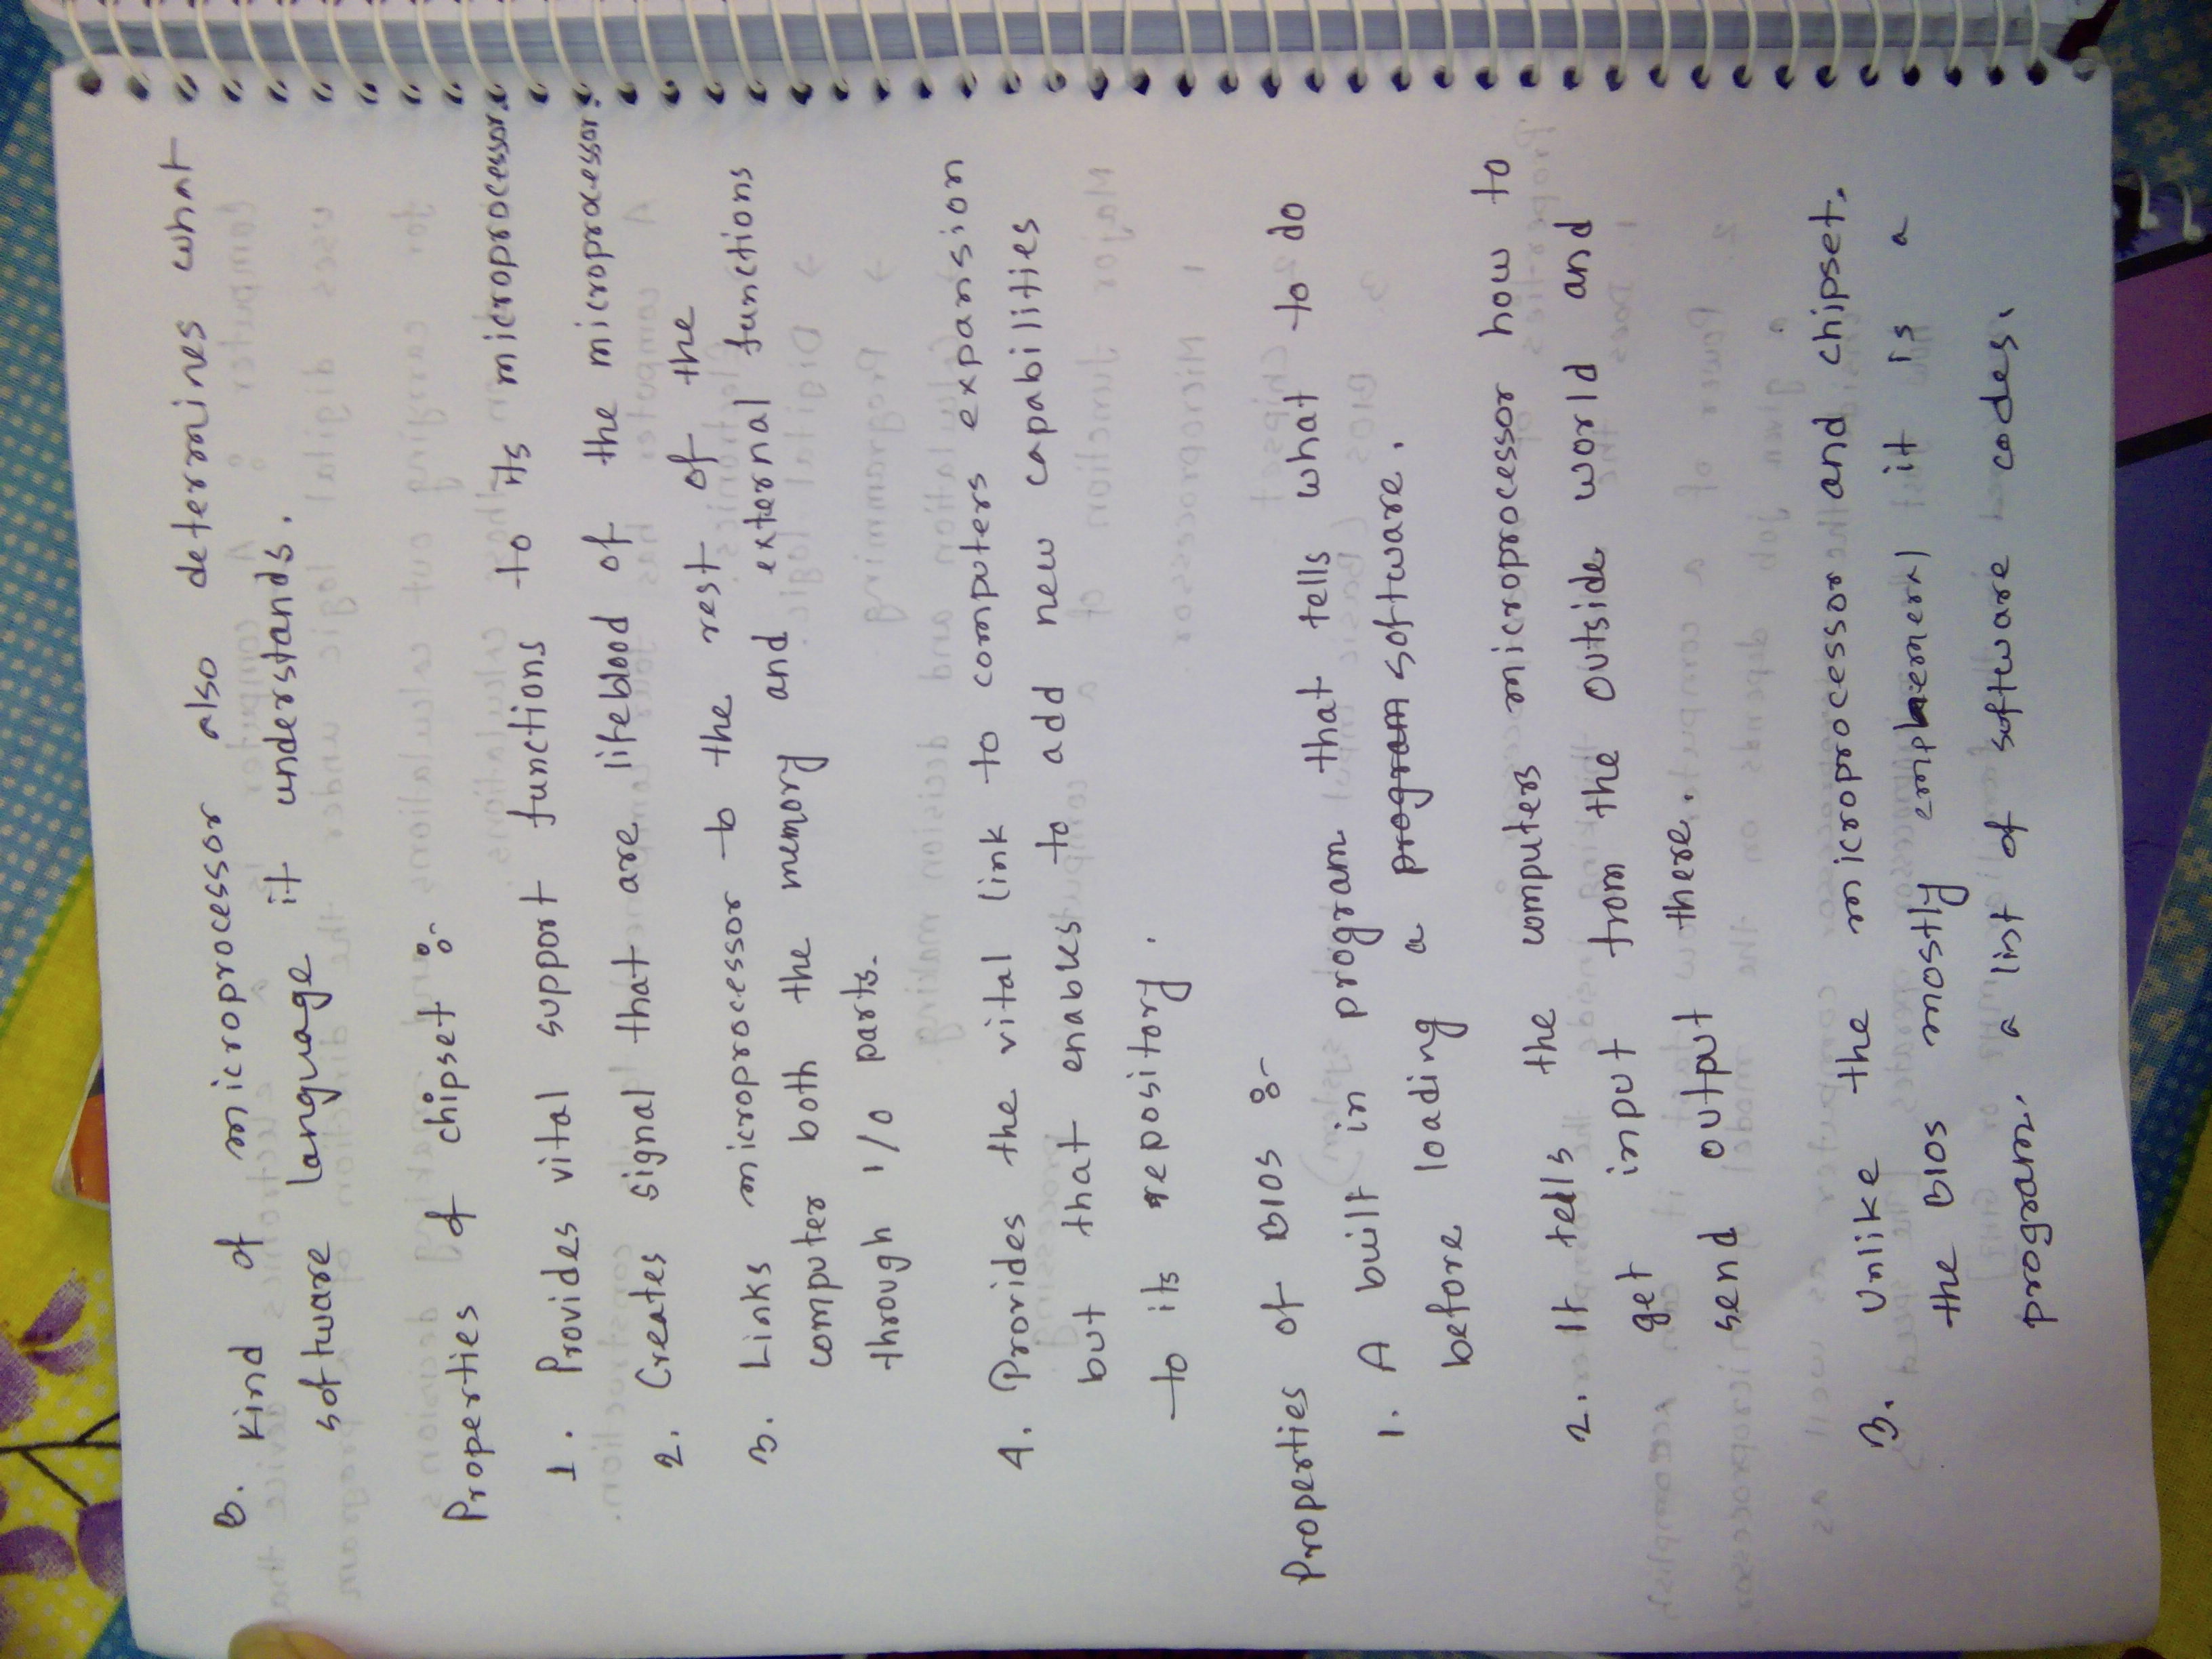 3. Kind of microprocessor also determines what
software language it understands.
Properties of chipset :-
1. Provides vital support functions to its microprocessor.
2. Creates signal that are lifeblood of the microprocessor.
3. Links microprocessor to the rest of the
computer both the memory and external functions
through I/O parts.
4. Provides the vital link to computers expansion
but that enables to add new capabilities
to its repository.
Properties of BIOS :-
1. A built in program that tells what to do
before loading a program software.
2. It tells the computers microprocessor how to
get input from the outside world and
send output there.
3. Unlike the microprocessor and chipset.
the BIOS mostly emphemeral it is a
program. a list of software codes.